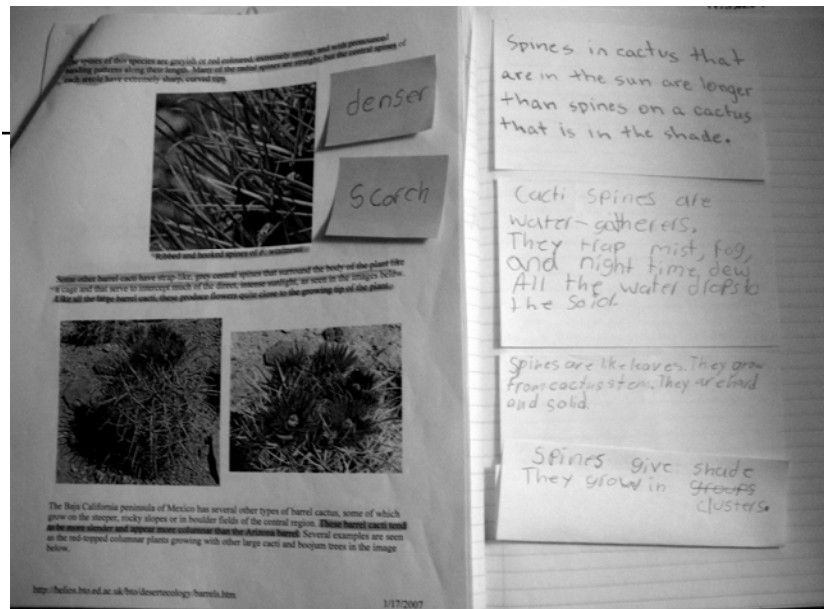 The spines of this species are greyish or red coloured, extremely strong, and with pronounced
banding patterns along their length. Many of the radial spines are straight, but the central spines of
each areole have extremely sharp, curved tips.
denser
Scorch
Ribbed and hooked spines of F. wislizenii
Some other barrel cacti have strap-like, grey central spines that surround the body of the plant like
a cage and that serve to intercept much of the direct, intense sunlight, as seen in the images below.
Like all the large barrel cacti, these produce flowers quite close to the growing tip of the plant.
The Baja California peninsula of Mexico has several other types of barrel cactus, some of which
grow on the steeper, rocky slopes or in boulder fields of the central region. These barrel cacti tend
to be more slender and appear more columnar than the Arizona barrel. Several examples are seen
as the red-topped columnar plants growing with other large cacti and boojum trees in the image
below.
http://helios.bto.ed.ac.uk/bto/desertecology/barrels.htm
1/17/2007
Spines in cactus that
are in the sun are longer
than spines on a cactus
that is in the shade.
Cacti spines are
water-gatherers.
They trap mist, fog,
and night time, dew
All the water drops to
the soid.
Spines are like leaves. They grow
from cactus stem. They are hard
and solid.
Spines give shade
They grow in groups
clusters.